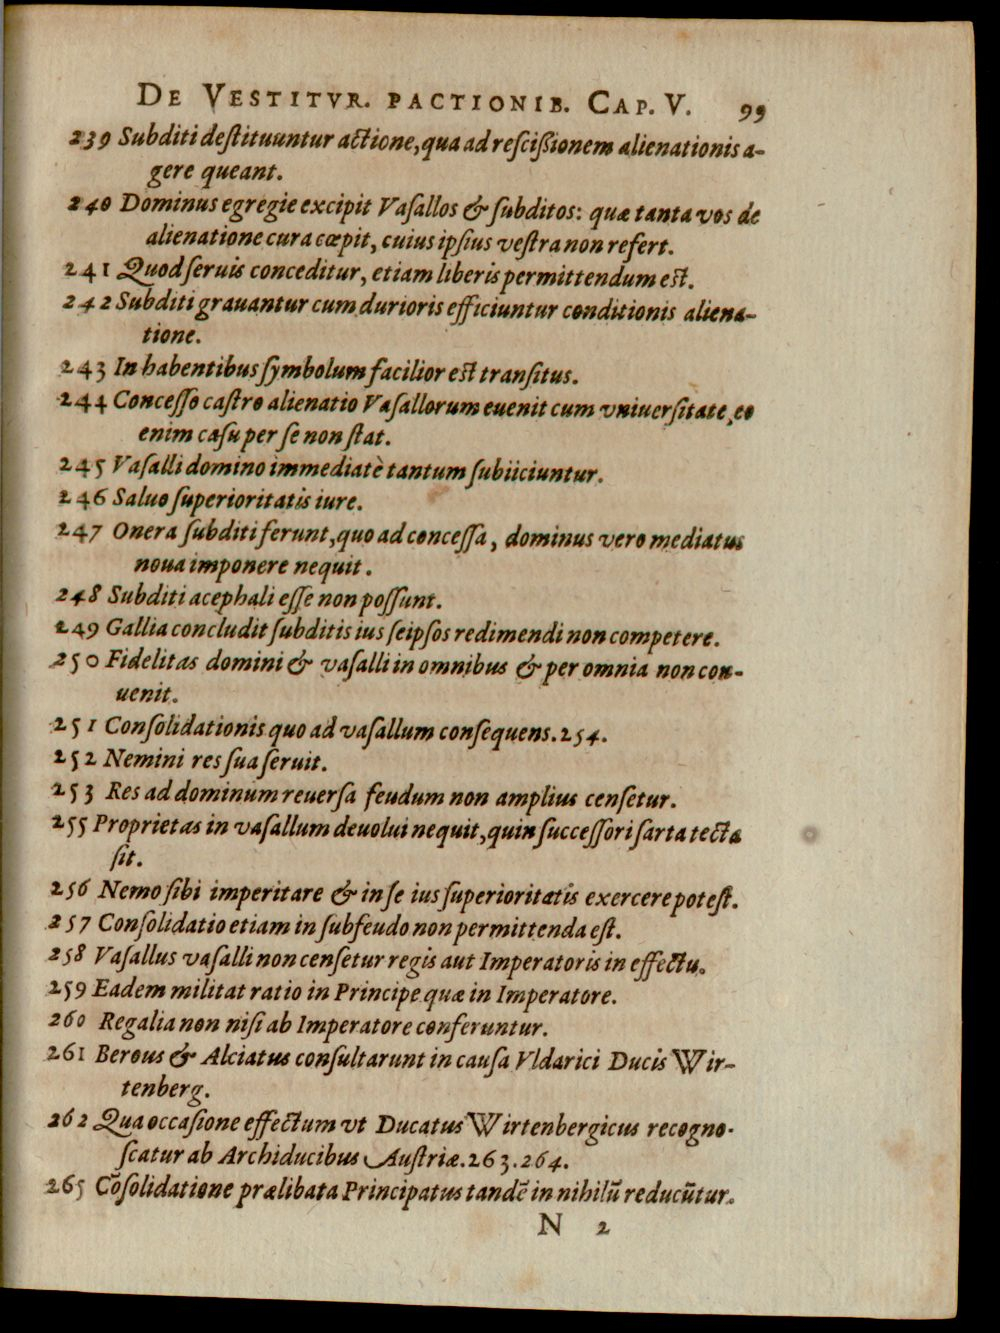 DE VESTITVR. PACTIONIB. CAP. V. 99
239 Subditi deſtituuntur actione, qua ad reſciſsionem alienationis a-
gere queant.
240 Dominus egregie excipit Vaſallos & ſubditos: quæ tanta vos de
alienatione cura cœpit, cuius ipſius veſtra non refert.
241 Quod ſeruis conceditur, etiam liberis permittendum eſt.
242 Subditi grauantur cum durioris efficiuntur conditionis aliena-
tione.
243 In habentibus ſymbolum facilior eſt tranſitus.
244 Conceſſo caſtro alienatio Vaſallorum euenit cum vniuerſitate, eo
enim caſu per ſe non ſtat.
245 Vaſalli domino immediatè tantum ſubiiciuntur.
246 Saluo ſuperioritatis iure.
247 Onera ſubditi ferunt, quo ad conceſſa, dominus vero mediatus
noua imponere nequit.
248 Subditi acephali eſſe non poſſunt.
249 Gallia concludit ſubditis ius ſeipſos redimendi non competere.
250 Fidelitas domini & vaſalli in omnibus & per omnia non con-
uenit.
251 Conſolidationis quo ad vaſallum conſequens. 254.
252 Nemini res ſua ſeruit.
253 Res ad dominum reuerſa feudum non amplius cenſetur.
255 Proprietas in vaſallum deuolui nequit, quin ſucceſſori ſarta tecta
ſit.
256 Nemo ſibi imperitare & in ſe ius ſuperioritatis exercere poteſt.
257 Conſolidatio etiam in ſubfeudo non permittenda eſt.
258 Vaſallus vaſalli non cenſetur regis aut Imperatoris in effectu.
259 Eadem militat ratio in Principe quæ in Imperatore.
260 Regalia non niſi ab Imperatore conferuntur.
261 Berous & Alciatus conſultarunt in cauſa Vldarici Ducis Wir-
tenberg.
262 Qua occaſione effectum vt Ducatus Wirtenbergicus recogno-
ſcatur ab Archiducibus Auſtriæ. 263. 264.
265 Cõſolidatione prælibata Principatus tandẽ in nihilũ reducũtur.
N 2